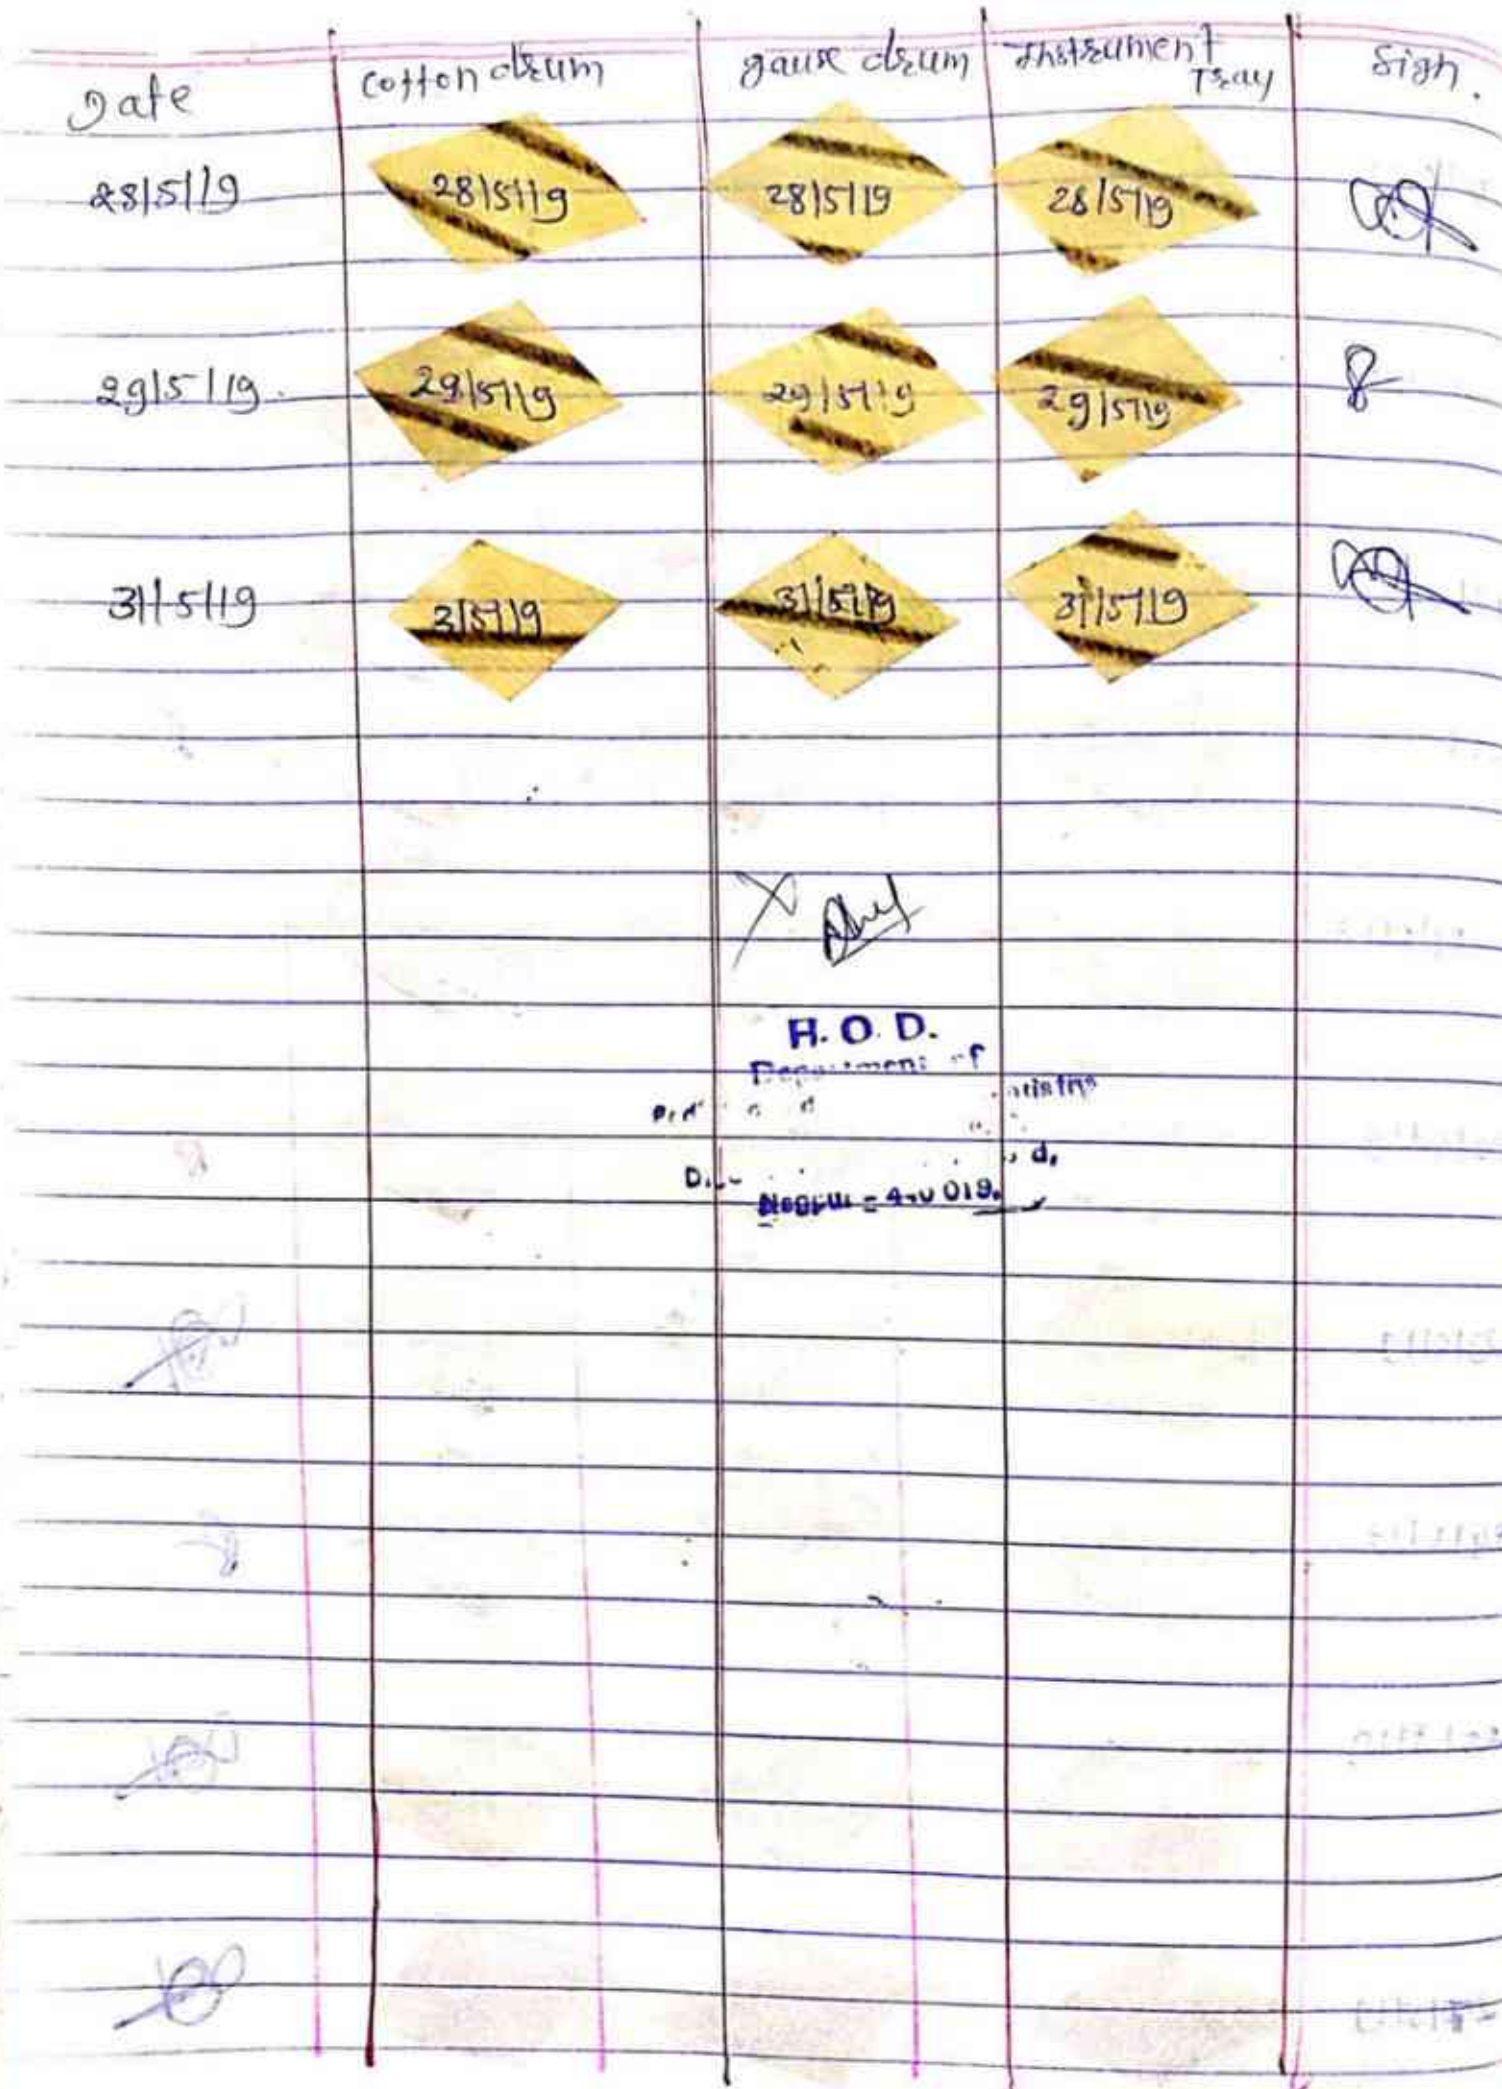 Date cotton drum gauze drum Instrument Tray Sign.
28/5/19 28/5/19 28/5/19 28/5/19
29/5/19. 29/5/19 29/5/19 29/5/19
31/5/19 31/5/19 31/5/19 31/5/19
H. O. D.
Department of